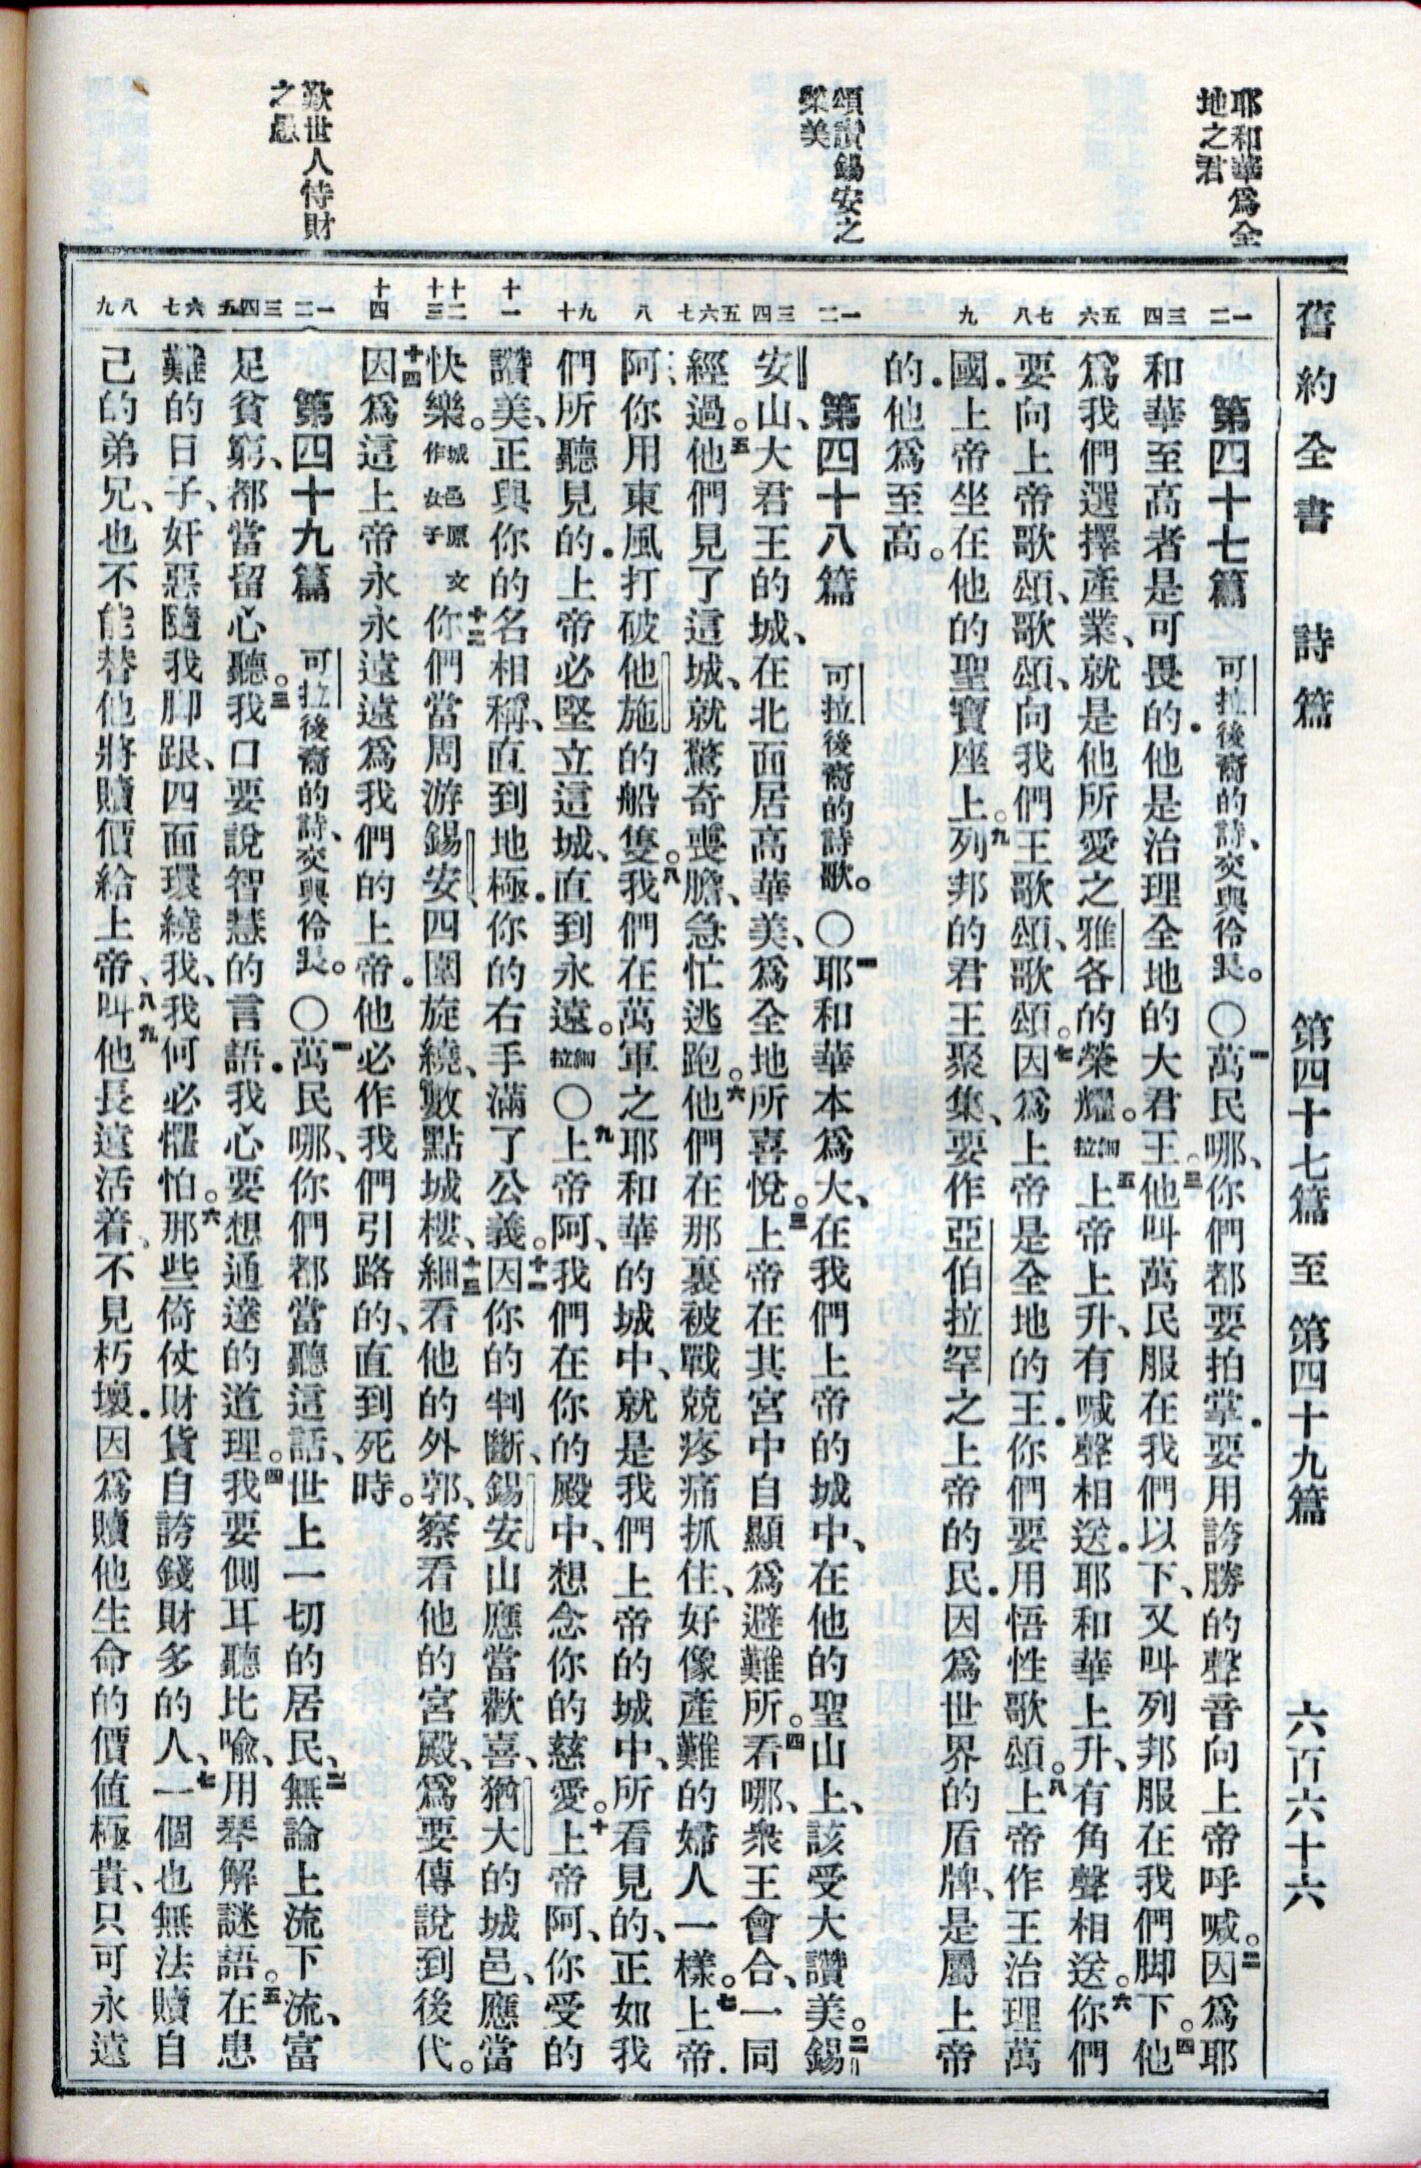 舊約全書 詩篇 第四十七篇 至 第四十九篇 六百六十六
耶和華爲全
地之君
頌讚錫安之
榮美
歎世人恃財
之愚
一二
三四
五六
七八
九
一二
三四
五六七
八
九十
十一
十二十三
十四
一二
三四五
六七
八九
第四十七篇 可拉後裔的詩、交與伶長。〇一萬民哪、你們都要拍掌．要用誇勝的聲音向上帝呼喊。二因爲耶
和華至高者是可畏的．他是治理全地的大君王。三他叫萬民服在我們以下、又叫列邦服在我們脚下。四他
爲我們選擇產業、就是他所愛之雅各的榮耀。細拉五上帝上升、有喊聲相送．耶和華上升、有角聲相送。六你們
要向上帝歌頌、歌頌、向我們王歌頌、歌頌。七因爲上帝是全地的王．你們要用悟性歌頌。八上帝作王治理萬
國．上帝坐在他的聖寶座上。九列邦的君王聚集、要作亞伯拉罕之上帝的民．因爲世界的盾牌、是屬上帝
的．他爲至高。
第四十八篇 可拉後裔的詩歌。〇一耶和華本爲大、在我們上帝的城中、在他的聖山上、該受大讚美。二錫
安山、大君王的城、在北面居高華美、爲全地所喜悅。三上帝在其宮中自顯爲避難所。四看哪、衆王會合、一同
經過。五他們見了這城、就驚奇喪膽、急忙逃跑。六他們在那裏被戰兢疼痛抓住、好像產難的婦人一樣。七上帝
阿、你用東風打破他施的船隻。八我們在萬軍之耶和華的城中、就是我們上帝的城中、所看見的、正如我
們所聽見的．上帝必堅立這城、直到永遠。細拉〇九上帝阿、我們在你的殿中、想念你的慈愛。十上帝阿、你受的
讚美、正與你的名相稱、直到地極．你的右手滿了公義。十一因你的判斷、錫安山應當歡喜、猶大的城邑、應當
快樂。城邑原文作女子十二你們當周游錫安、四圍旋繞、數點城樓、十三細看他的外郭、察看他的宮殿、爲要傳說到後代。
十四因爲這上帝永永遠遠爲我們的上帝．他必作我們引路的、直到死時。
第四十九篇 可拉後裔的詩、交與伶長。〇一萬民哪、你們都當聽這話、世上一切的居民、二無論上流下流、富
足貧窮、都當留心聽。三我口要說智慧的言語．我心要想通達的道理。四我要側耳聽比喻、用琴解謎語。五在患
難的日子、奸惡隨我脚跟、四面環繞我、我何必懼怕。六那些倚仗財貨自誇錢財多的人、七一個也無法贖自
己的弟兄、也不能替他將贖價給上帝、八九叫他長遠活着、不見朽壞．因爲贖他生命的價值極貴、只可永遠